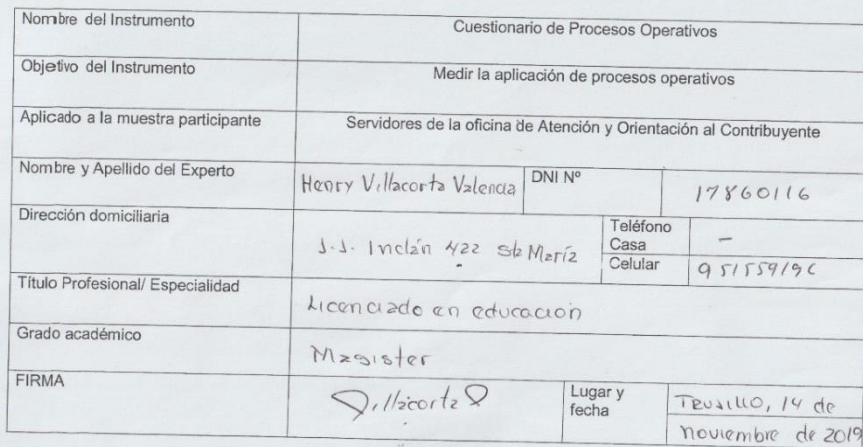 Nombre del Instrumento
Cuestionario de Procesos Operativos
Objetivo del Instrumento
Medir la aplicación de procesos operativos
Aplicado a la muestra participante
Servidores de la oficina de Atención y Orientación al Contribuyente
Nombre y Apellido del Experto
Henry Villacorta Valencia
DNI Nº
17860116
Dirección domiciliaria
J.J. Inclán 422 Sta María
Teléfono
Casa
-
Celular
Título Profesional/ Especialidad
Licenciado en educación
Grado académico
Magister
FIRMA
Villacorta
Lugar y
fecha
Trujillo, 14 de
noviembre de 2019